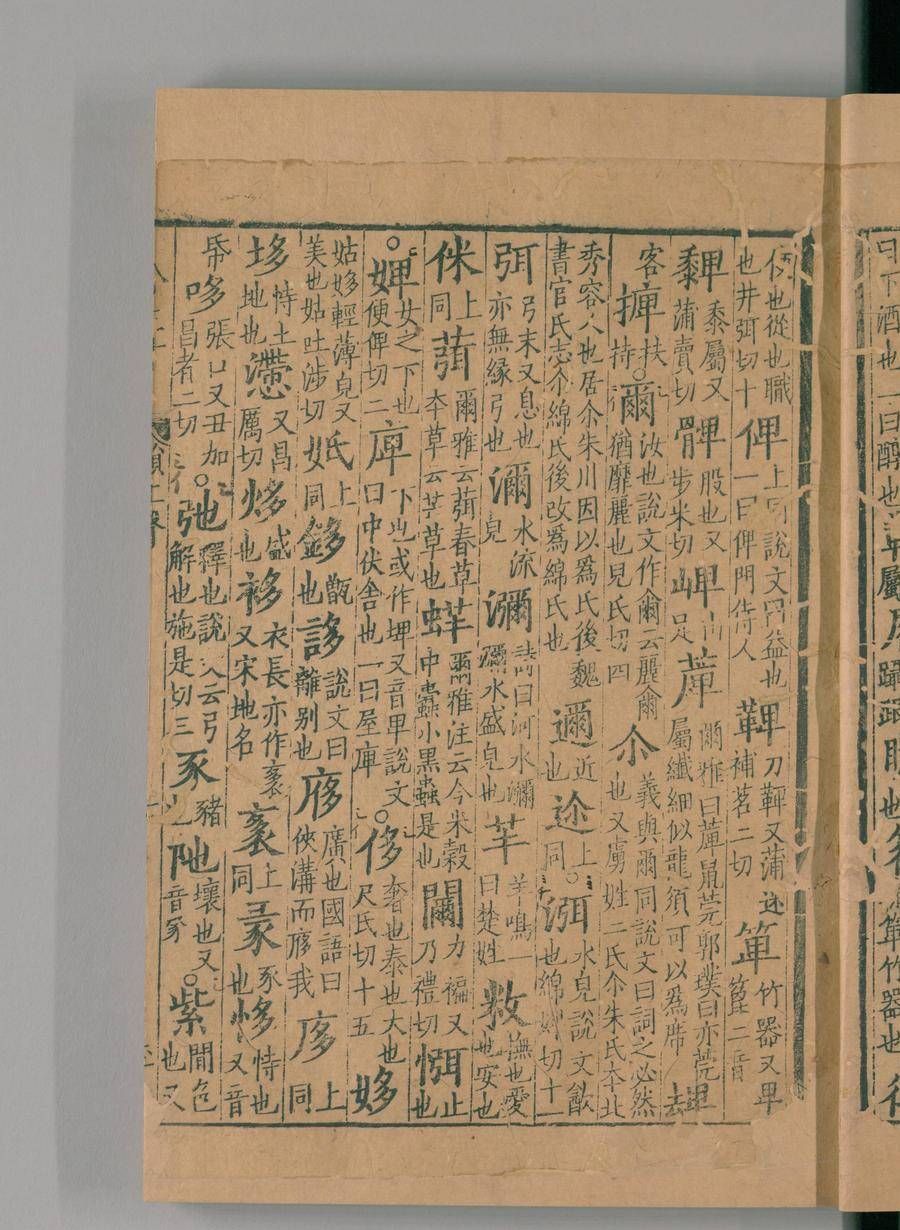 使也從也職也井弭切十俾上同說文曰益也一曰俾門侍人鞞刀鞞又蒲迷補茗二切箄竹器又畀篚二音
䫌黍屬又蒲賣切髀股也又步米切崥山足萆爾雅曰萆鼠莞郭璞曰亦莞屬纖細似龍須可以爲席
客捭扶持爾汝也說文作爾云麗爾猶靡麗也兒氏切四尒義與爾同說文曰詞之必然也又虜姓二氏尒朱氏本北
秀容人也居尒朱川因以爲氏後魏書官氏志尒綿氏後改爲綿氏也邇近也迩上同渳水皃說文飲也綿婢切十一
弭弓末又息也亦無緣弓也瀰水流皃濔詩曰河水瀰瀰水盛皃也羋羊鳴一曰楚姓敉撫也愛也安也
侎上同葞爾雅云葞春草本草云芒草也蛘爾雅注云今米穀中蠹小黑蟲是也䦵力禰又乃禮切㥝止也
婢女之下也便俾切二庳下也或作埤又音卑說文曰中伏舍也一曰屋庫侈奢也泰也大也尺氏切十五姼
姑姼輕薄皃又美也姑吐涉切㚰上同鉹甑也誃說文曰離別也㢋廣也國語曰俠溝而㢋我庈上同
垑恃土地也懘又昌厲切㶴盛也袳衣長亦作袲又宋地名袲上同彖豕也恀恃也又音
帋哆張口又丑加昌者二切弛釋也說文云弓解也施是切三豕豬也阤壞也又音豸紫閒色也又